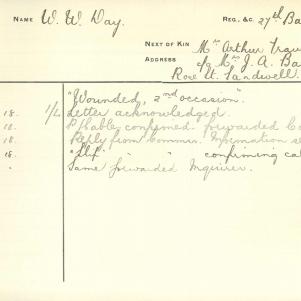 NAME W. W. Day. REG., &C. 27th Ba
NEXT OF KIN Mr Arthur
ADDRESS c/o Mrs J. A. Ba
Rose St. Sandwell.
"Wounded, 2nd occasion".
18. 1/2 Letter acknowledged.
18. P/Cable confirmed. forwarded
18. Reply from Commr. Information
18. " " confirming ca
" Same forwarded Inquirer.